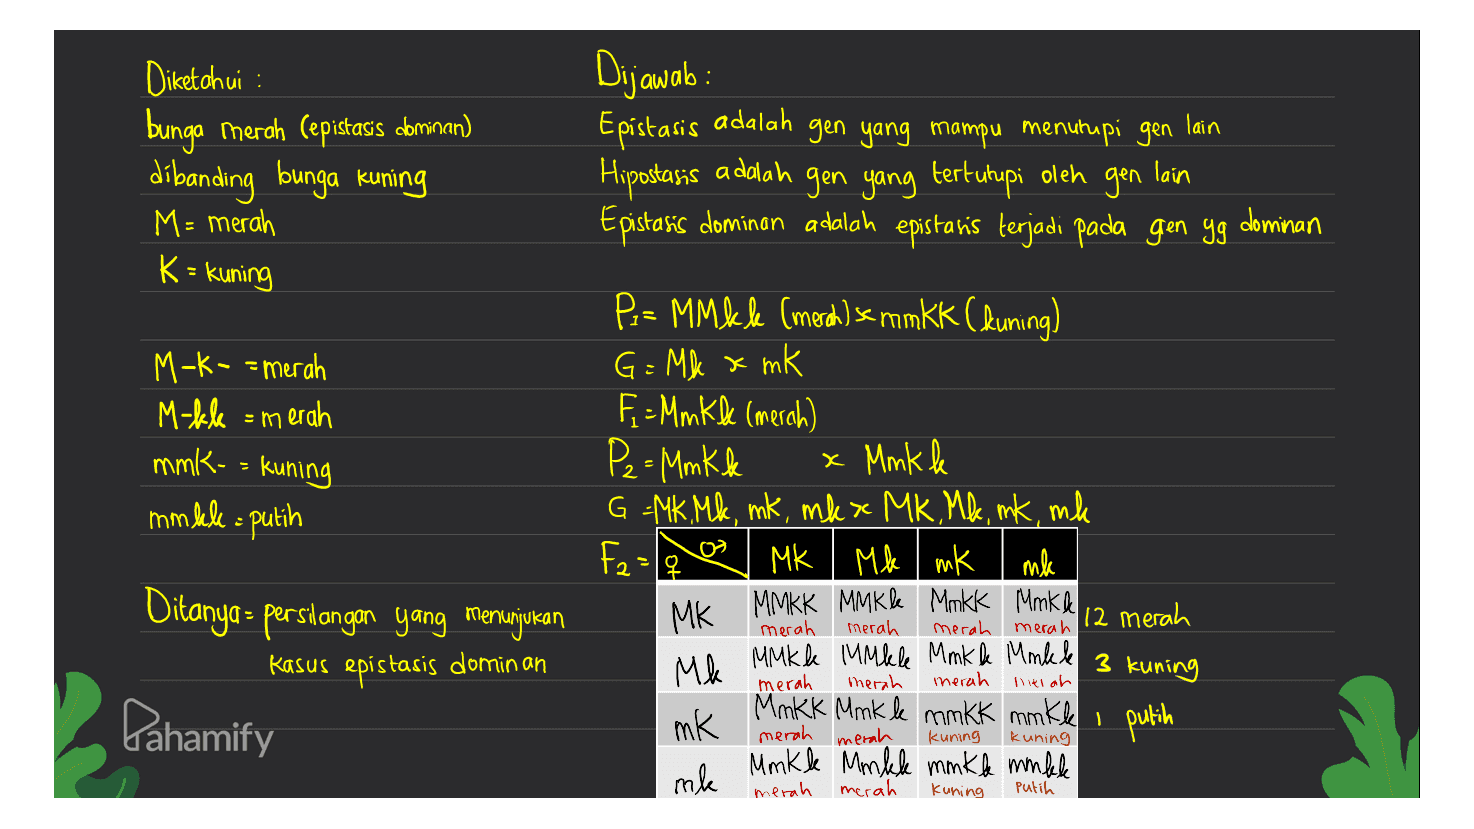 Diketahui :
bunga merah (epistasis dominan)
dibanding bunga kuning
M = merah
K = kuning
M-K- = merah
M-kk = merah
mmK- = kuning
mmkk = putih
Ditanya = persilangan yang menunjukan
kasus epistasis dominan
Dijawab :
Epistasis adalah gen yang mampu menutupi gen lain
Hipostasis adalah gen yang tertutupi oleh gen lain
Epistasis dominan adalah epistasis terjadi pada gen yg dominan
P1 = MMkk (merah) x mmKK (kuning)
G = Mk x mK
F1 = MmKk (merah)
P2 = MmKk x MmKk
G = MK, Mk, mK, mk x MK, Mk, mK, mk
F2 =
♀ ♂ MK Mk mK mk
MK MMKK MMKk MmKK MmKk
merah merah merah merah
Mk MMKk MMkk MmKk Mmkk
merah merah merah merah
mK MmKK MmKk mmKK mmKk
merah merah kuning kuning
mk MmKk Mmkk mmKk mmkk
merah merah kuning putih
12 merah
3 kuning
1 putih
Pahamify